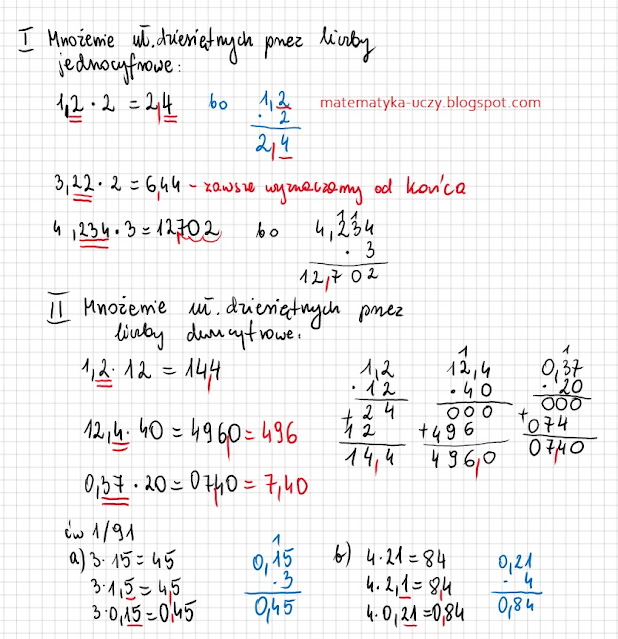 I Mnożenie uł. dziesiętnych przez liczby
jednocyfrowe:
1,2 · 2 = 2,4 bo 1,2
· 2
2,4
matematyka-uczy.blogspot.com
3,22 · 2 = 6,44 - zawsze wyznaczamy od końca
4,234 · 3 = 12,702 bo 11
4,234
· 3
12,702
II Mnożenie uł. dziesiętnych przez
liczby dwucyfrowe:
1,2 · 12 = 14,4
12,4 · 40 = 496,0 = 496
0,37 · 20 = 07,40 = 7,40
1,2
· 12
+ 24
12
14,4
1
12,4
· 40
000
+ 496
496,0
1
0,37
· 20
000
+ 074
07,40
ćw 1/91
a) 3 · 15 = 45
3 · 1,5 = 4,5
3 · 0,15 = 0,45
1
0,15
· 3
0,45
b) 4 · 21 = 84
4 · 2,1 = 8,4
4 · 0,21 = 0,84
0,21
· 4
0,84